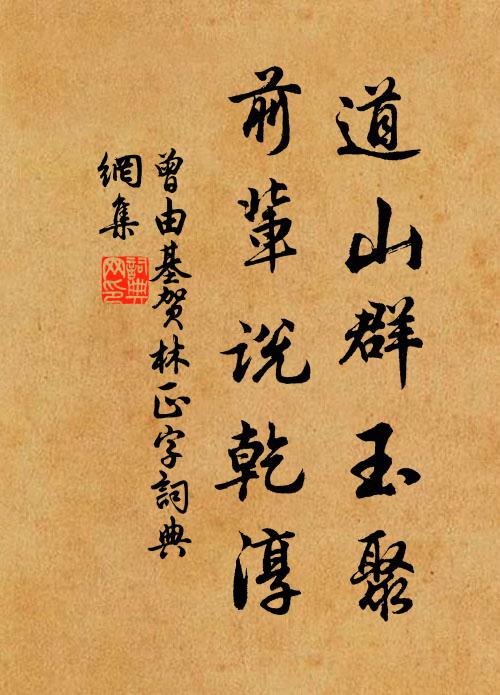 道山群玉聚
前輩说乾淳
曾由基贺林正字詞典
網集
詞典
网印